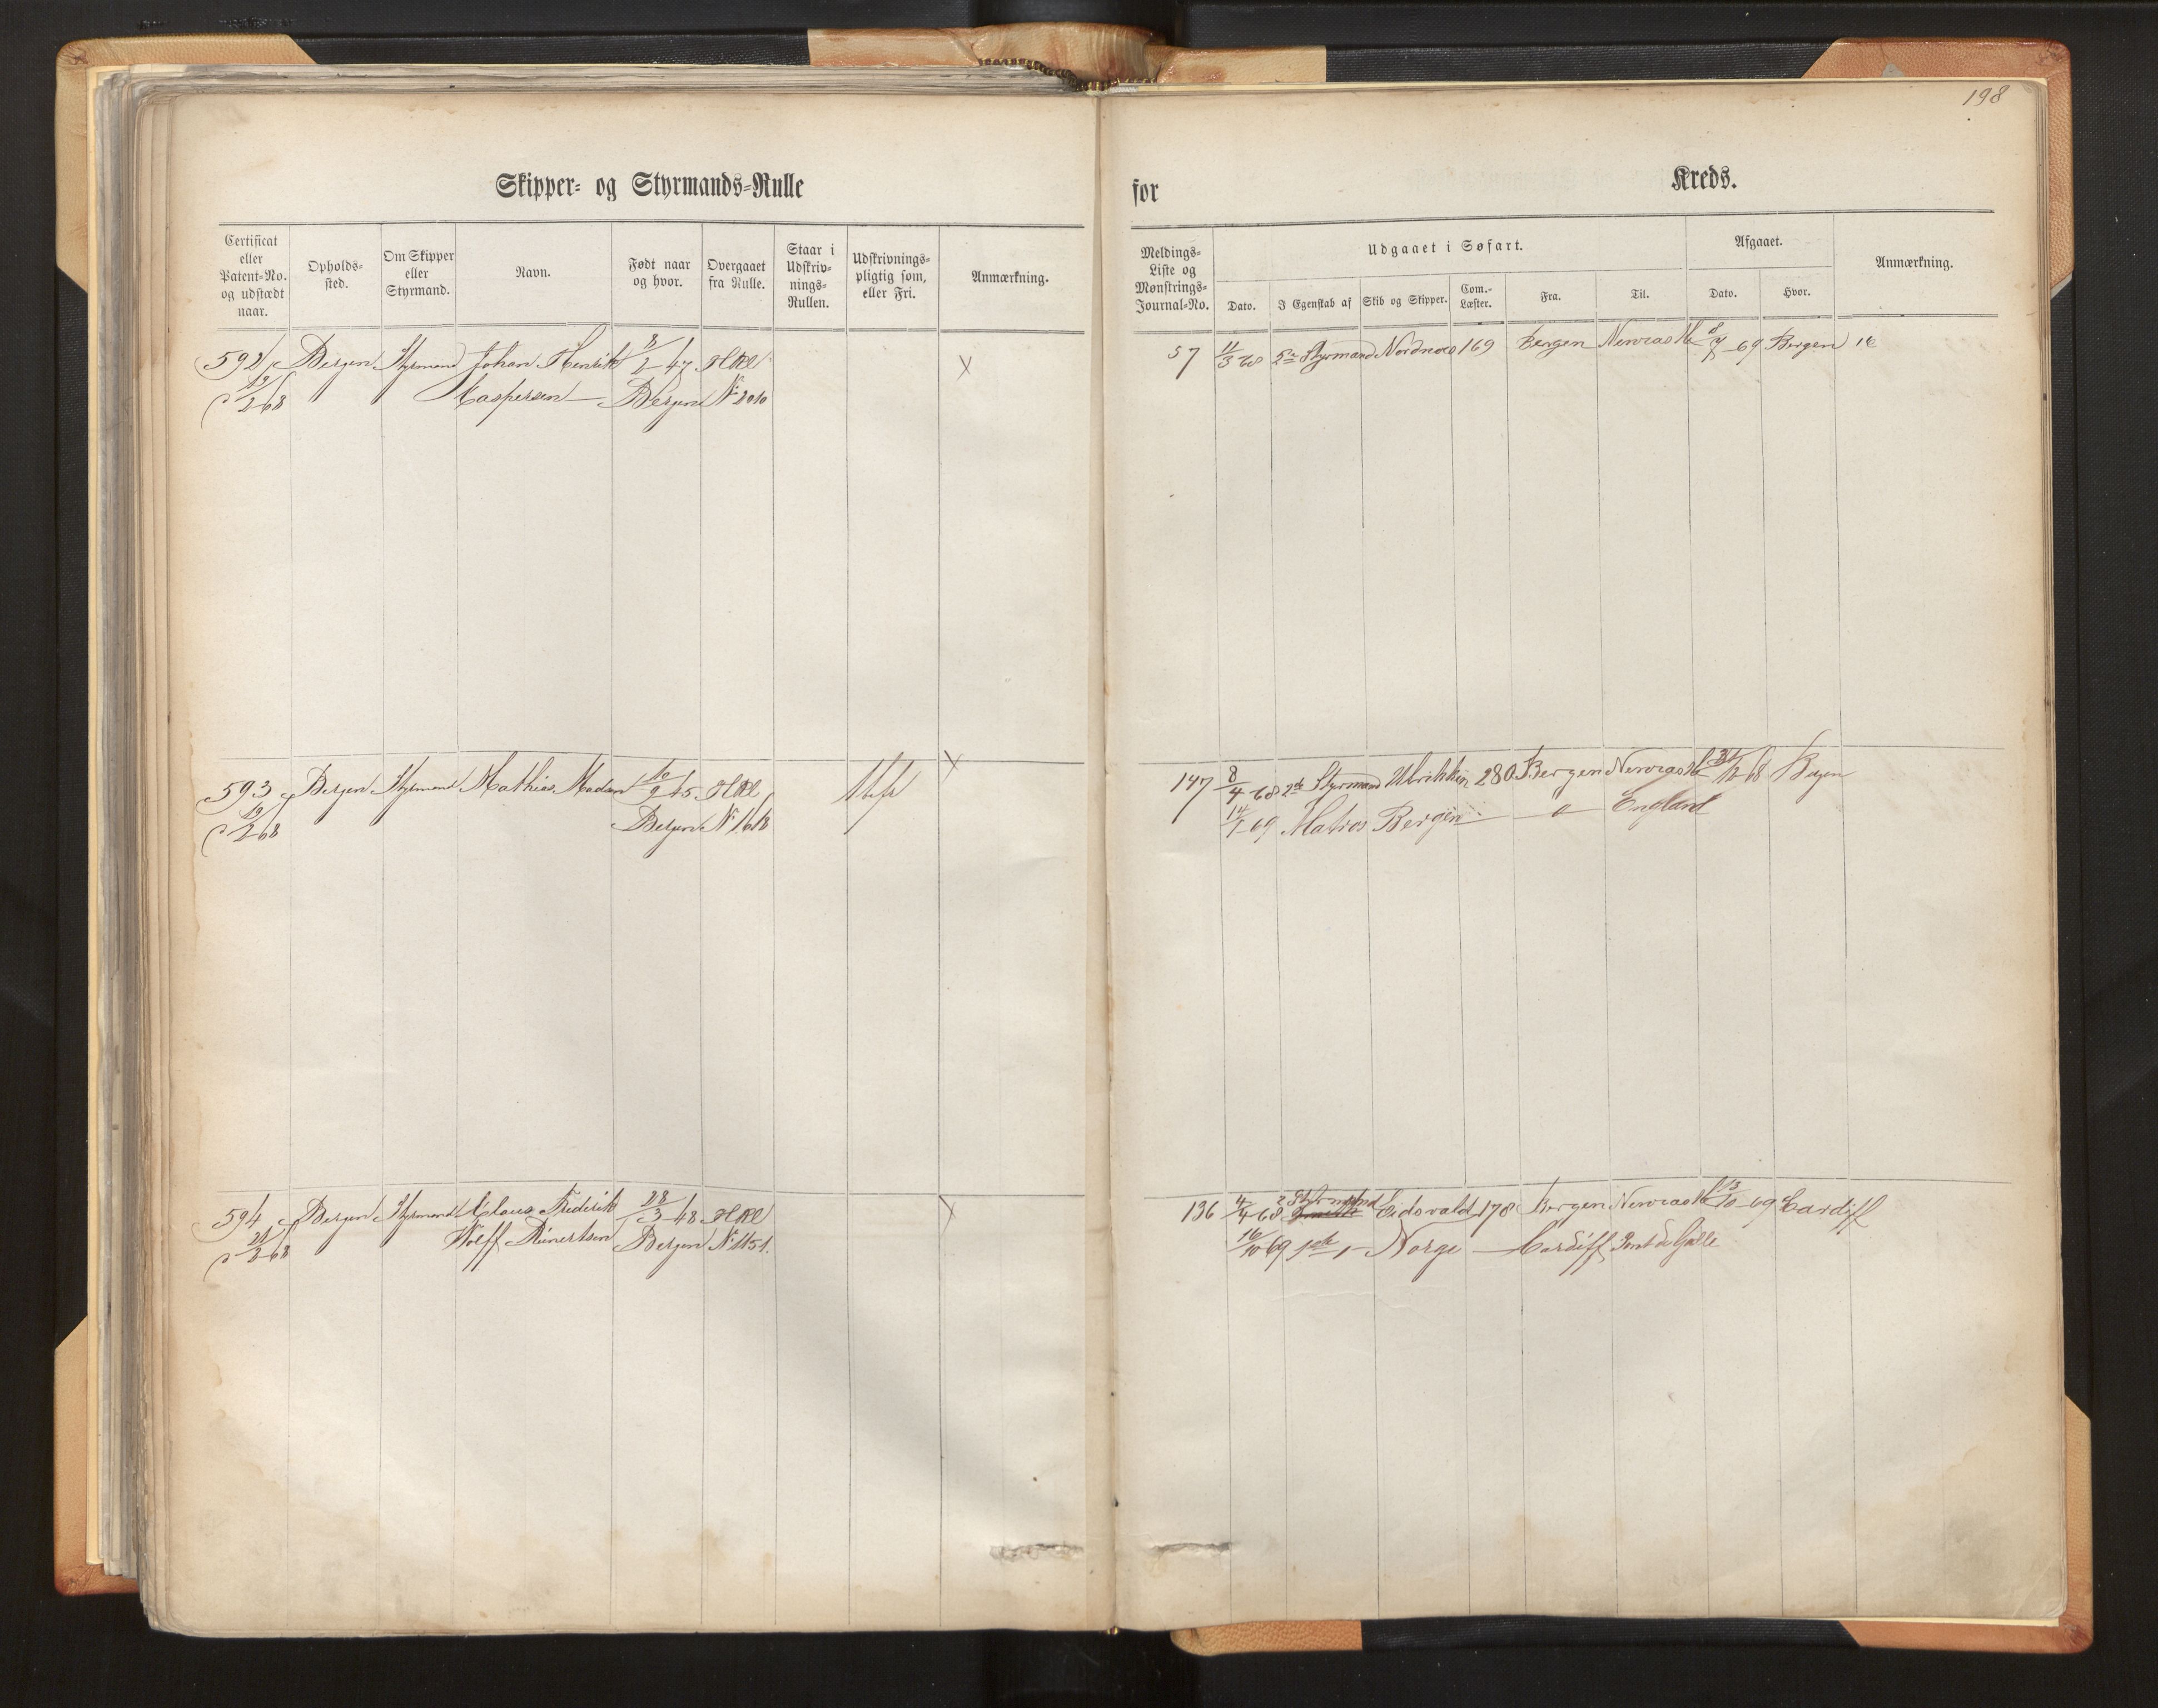 198
Skipper- og Styrmands-Rulle
for Kreds.
Certificat eller Patent-No. og udstædt naar.
Opholds-sted.
Om Skipper eller Styrmand.
Navn.
Født naar og hvor.
Overgaaet fra Rulle.
Staar i Udskriv-nings-Rullen.
Udskrivnings-pligtig som, eller Fri.
Anmærkning.
Meldings-Liste og Mønstrings-Journal-No.
Udgaaet i Søfart.
Dato.
I Egenskab af
Skib og Skipper.
Com.-Læster.
Fra.
Til.
Afgaaet.
Dato.
Hvor.
Anmærkning.
592 Bergen Styrmand Johan Henrik 8/2 47 HRl x
19/2 68 Caspersen Bergen No 2010
57 11/3 68 2n Styrmand Nordnæs 169 Bergen Newcastle 8/7 69 Bergen 16
593 Bergen Styrmand Mathias Madsen 10/9 45 HRl x
19/2 68 Bergen No 1618
147 8/4 68 2de Styrmand Ulrikken 280 Bergen Newcastle 31/12 68 Bergen
14/1 69 Matros Bergen England
594 Bergen Styrmand Claus Frederik 28/3 48 HRl x
21/2 68 Wolff Reinertsen Bergen No 1151.
136 4/4 68 2 Styrmand Eidsvold 178 Bergen Newcastle 13/10 69 Cardiff
16/10 69 1ste Norge Cardiff Point de Galle